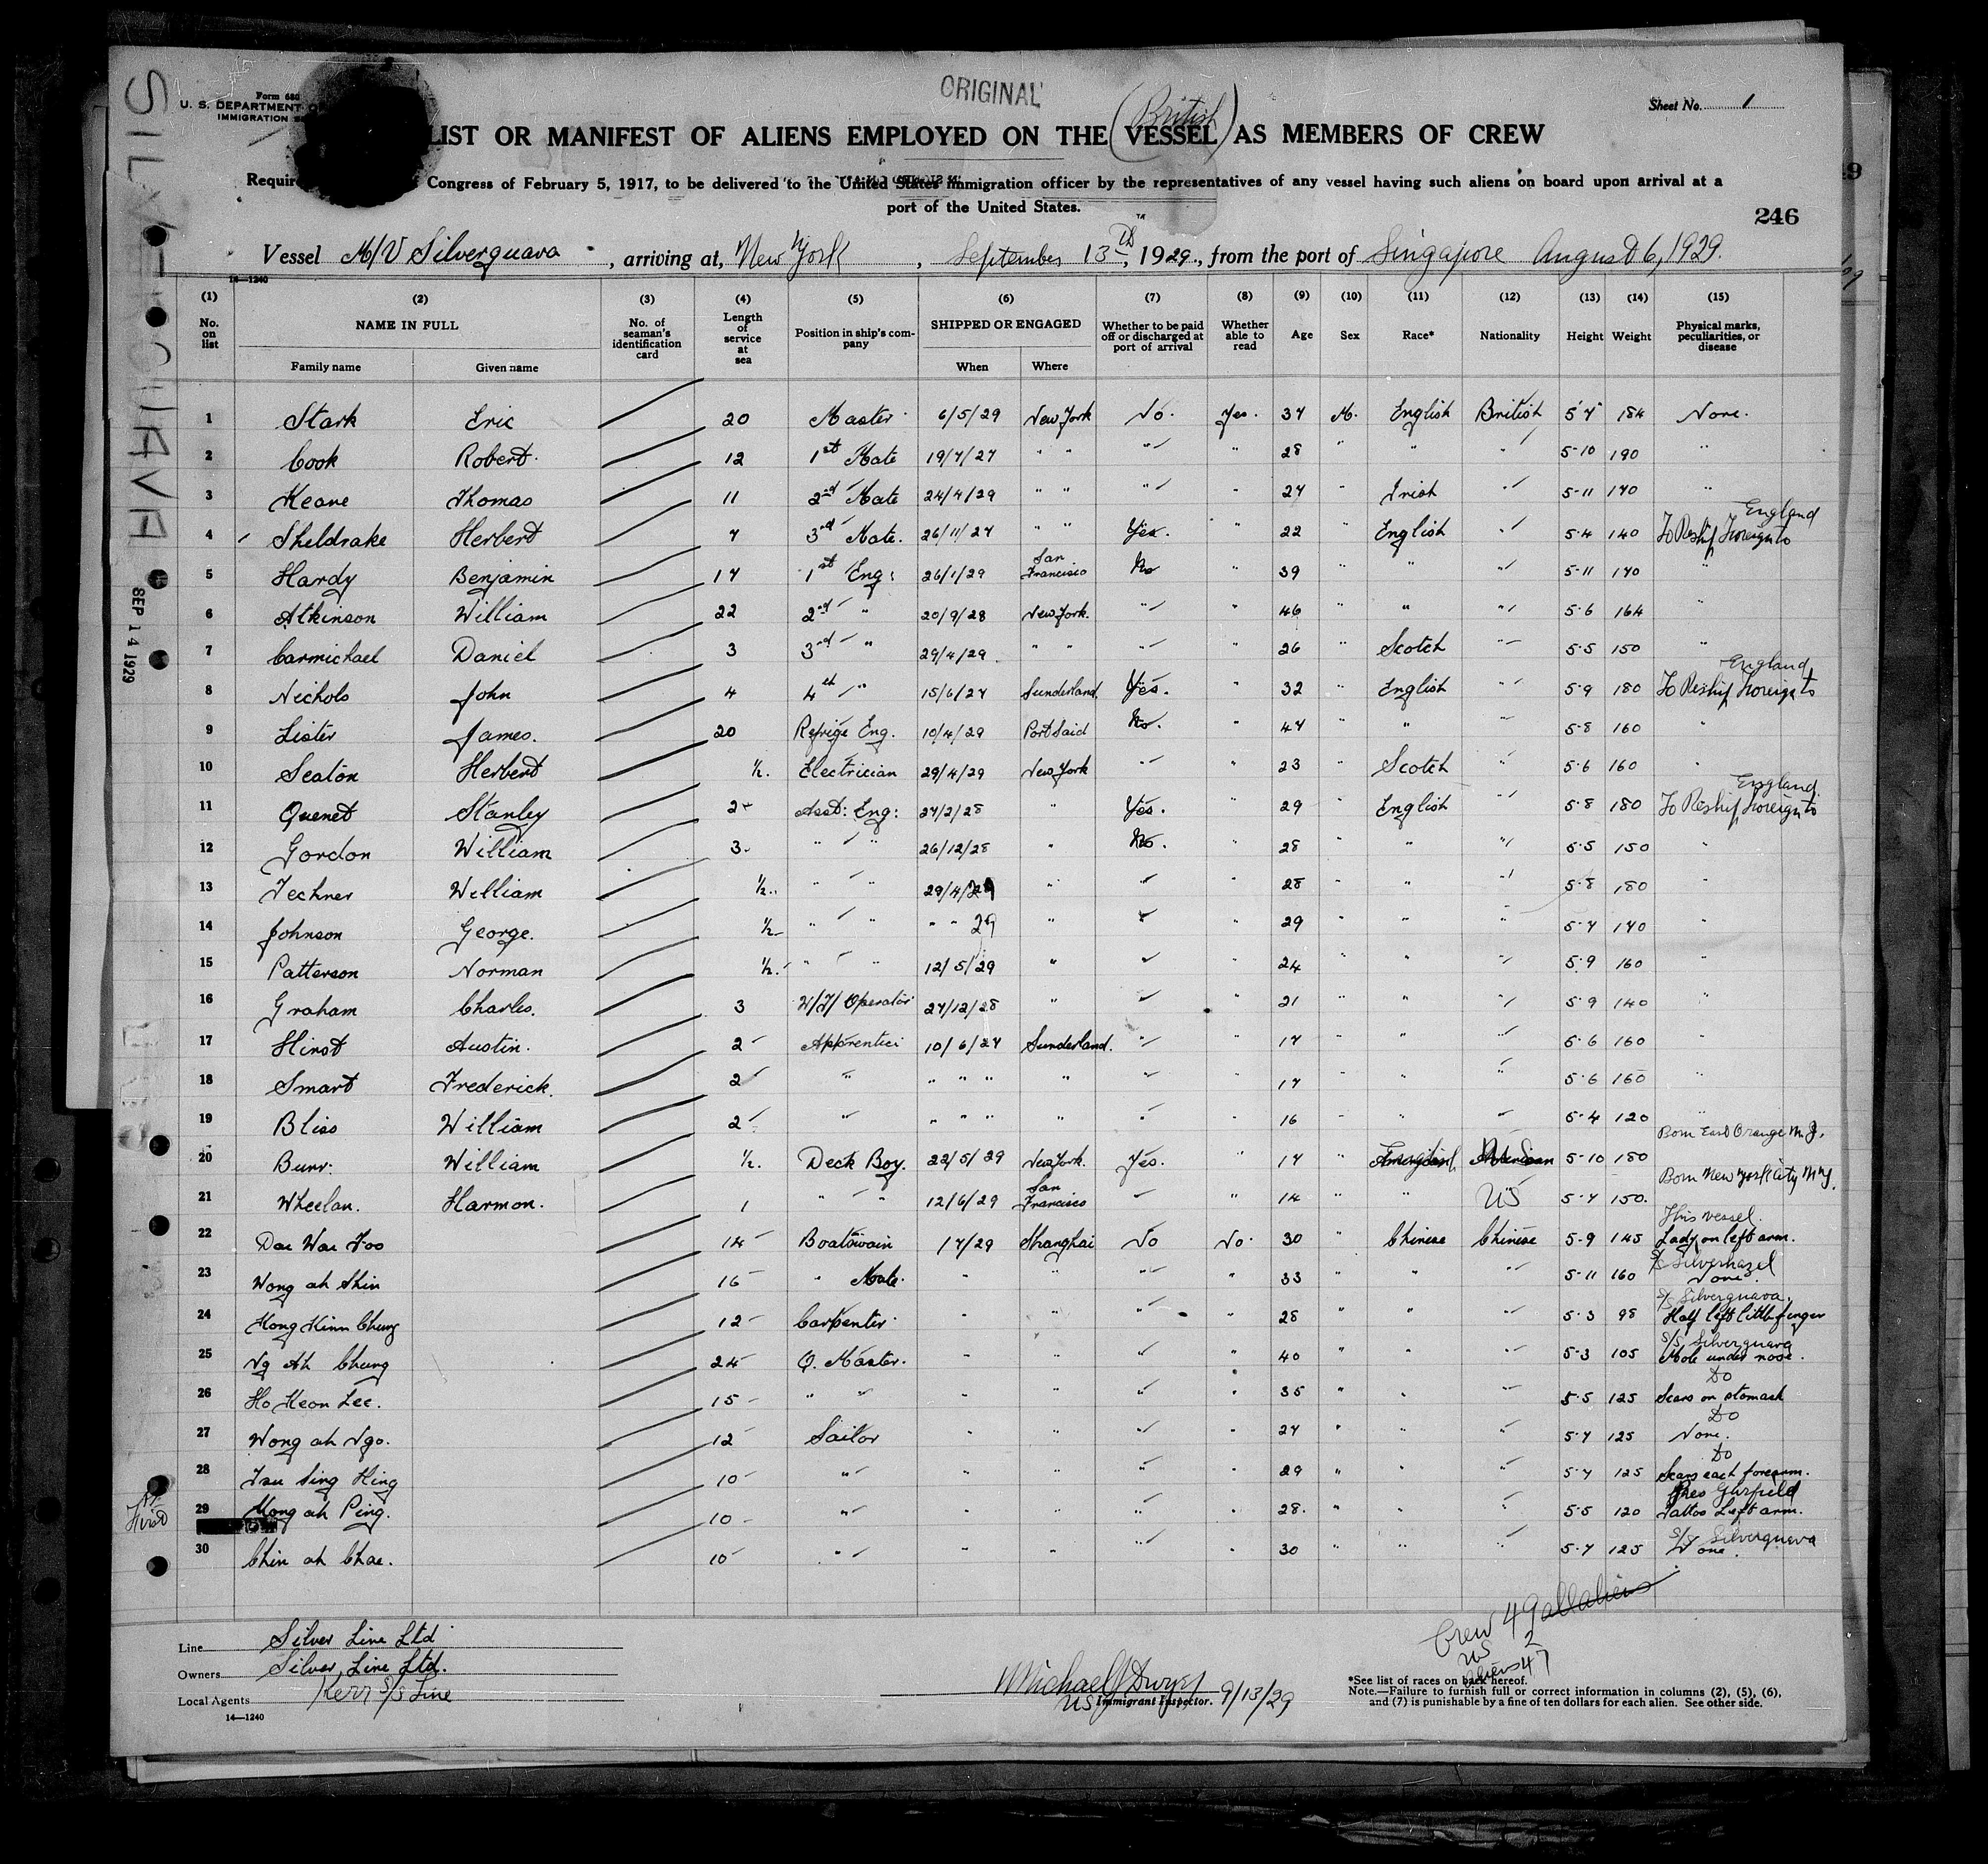 ORIGINAL
Form 680
U. S. DEPARTMENT OF
IMMIGRATION SE
Sheet No. 1
(British)
LIST OR MANIFEST OF ALIENS EMPLOYED ON THE VESSEL AS MEMBERS OF CREW
Require Congress of February 5, 1917, to be delivered to the United States immigration officer by the representatives of any vessel having such aliens on board upon arrival at a
port of the United States.
246
Vessel M/V Silverguava, arriving at, New York, September 13th, 1929., from the port of Singapore August 6, 1929.
14—1240
(1) (2) (3) (4) (5) (6) (7) (8) (9) (10) (11) (12) (13) (14) (15)
No. on list NAME IN FULL No. of seaman's identification card Length of service at sea Position in ship's company SHIPPED OR ENGAGED Whether to be paid off or discharged at port of arrival Whether able to read Age Sex Race* Nationality Height Weight Physical marks, peculiarities, or disease
Family name Given name When Where
1 Stark Eric 20 Master 6/5/29 New York No. Yes. 37 M. English British 5'7" 184 None.
2 Cook Robert. 12 1st Mate 19/7/27 " " " " 28 " " " 5-10 190 "
3 Keane Thomas 11 2nd Mate 24/4/29 " " " " 27 " Irish " 5-11 170 "
England
4 Sheldrake Herbert 7 3rd Mate. 26/11/27 " " Yes. " 22 " English " 5-4 140 To Reship Foreign to
5 Hardy Benjamin 17 1st Eng: 26/1/29 San Francisco No " 39 " " " 5-11 170 "
6 Atkinson William 22 2nd " 20/9/28 New York. " " 46 " " " 5-6 164 "
7 Carmichael Daniel 3 3rd " 29/4/29 " " " " 26 " Scotch " 5-5 150 "
England
8 Nichols John 4 4th " 15/6/27 Sunderland Yes. " 32 " English " 5-9 180 To Reship Foreign to
9 Lister James. 20 Refrige Eng. 10/4/29 Port Said No. " 47 " " " 5-8 160 "
10 Seaton Herbert ½. Electrician 29/4/29 New York " " 23 " Scotch " 5-6 160 "
England
11 Quenet Stanley 2 Asst: Eng: 27/2/28 " Yes. " 29 " English " 5-8 180 To Reship Foreign to
12 Gordon William 3. " " 26/12/28 " No. " 28 " " " 5-5 150 "
13 Techner William ½. " " 29/4/29 " " 28 " " " 5-8 180
14 Johnson George. ½ " " " " 29 " " 29 " " " 5-7 140
15 Patterson Norman ½. " " 12/5/29 " " 24 " " " 5-9 160 "
16 Graham Charles. 3 W/T/ Operator 27/12/28 " " 21 " " " 5-9 140 "
17 Hirst Austin. 2 Apprentice 10/6/27 Sunderland. " " 17 " " " 5-6 160 "
18 Smart Frederick. 2 " " " " " " 17 " " " 5-6 160 "
19 Bliss William 2 " " " " " " 16 " " " 5-4 120 "
Born East Orange N. J.
20 Burr. William ½. Deck Boy. 22/5/29 New York. Yes. " 17 " 5-10 180
Born New York City N.Y.
21 Wheelan. Harmon. 1 " " 12/6/29 San Francisco " 14 " " US 5-7 150.
This vessel.
22 Dae Wae Foo 14 Boatswain 1/7/29 Shanghai No No. 30 " Chinese Chinese 5-9 145 Lady on left arm.
S/S Silverhazel
23 Wong ah Shin 16 " Mate. " " " " 33 " " " 5-11 160 None.
S/S Silverguava.
24 Hong Kinn Chung 12 Carpenter " " " " 28 " " " 5-3 98 Half left little finger
S/S Silverguava
25 Ng Ah Chung 24 Q. Master. " " " 40 " " " 5-3 105 Mole under nose.
Do
26 Ho Keon Lee. 15 " " " " " 35 " " " 5-5 125 Scars on stomach
Do
27 Wong ah Ngo. 12 Sailor " " " 27 " " " 5-7 125 None.
Do
28 Tau Sing Hing 10 " " " " 29 " " " 5-7 125 Scars each forearm.
Pres Garfield
First 29 Mong ah Ping. 10 " " " " 28. " " " 5-5 120 Tattoo Left arm.
S/S Silverguava
30 Chin ah Chae. 10 " " " " 30 " " " 5-7 125 None.
Crew 49 all aliens
US 2
aliens 47
Line Silver Line Ltd
Owners Silver Line Ltd.
Local Agents Kerr S/S Line
14—1240
Michael J Dwyer
US Immigrant Inspector. 9/13/29
*See list of races on back hereof.
Note.—Failure to furnish full or correct information in columns (2), (5), (6),
and (7) is punishable by a fine of ten dollars for each alien. See other side.
SILVERGUAVA
SEP 14 1929